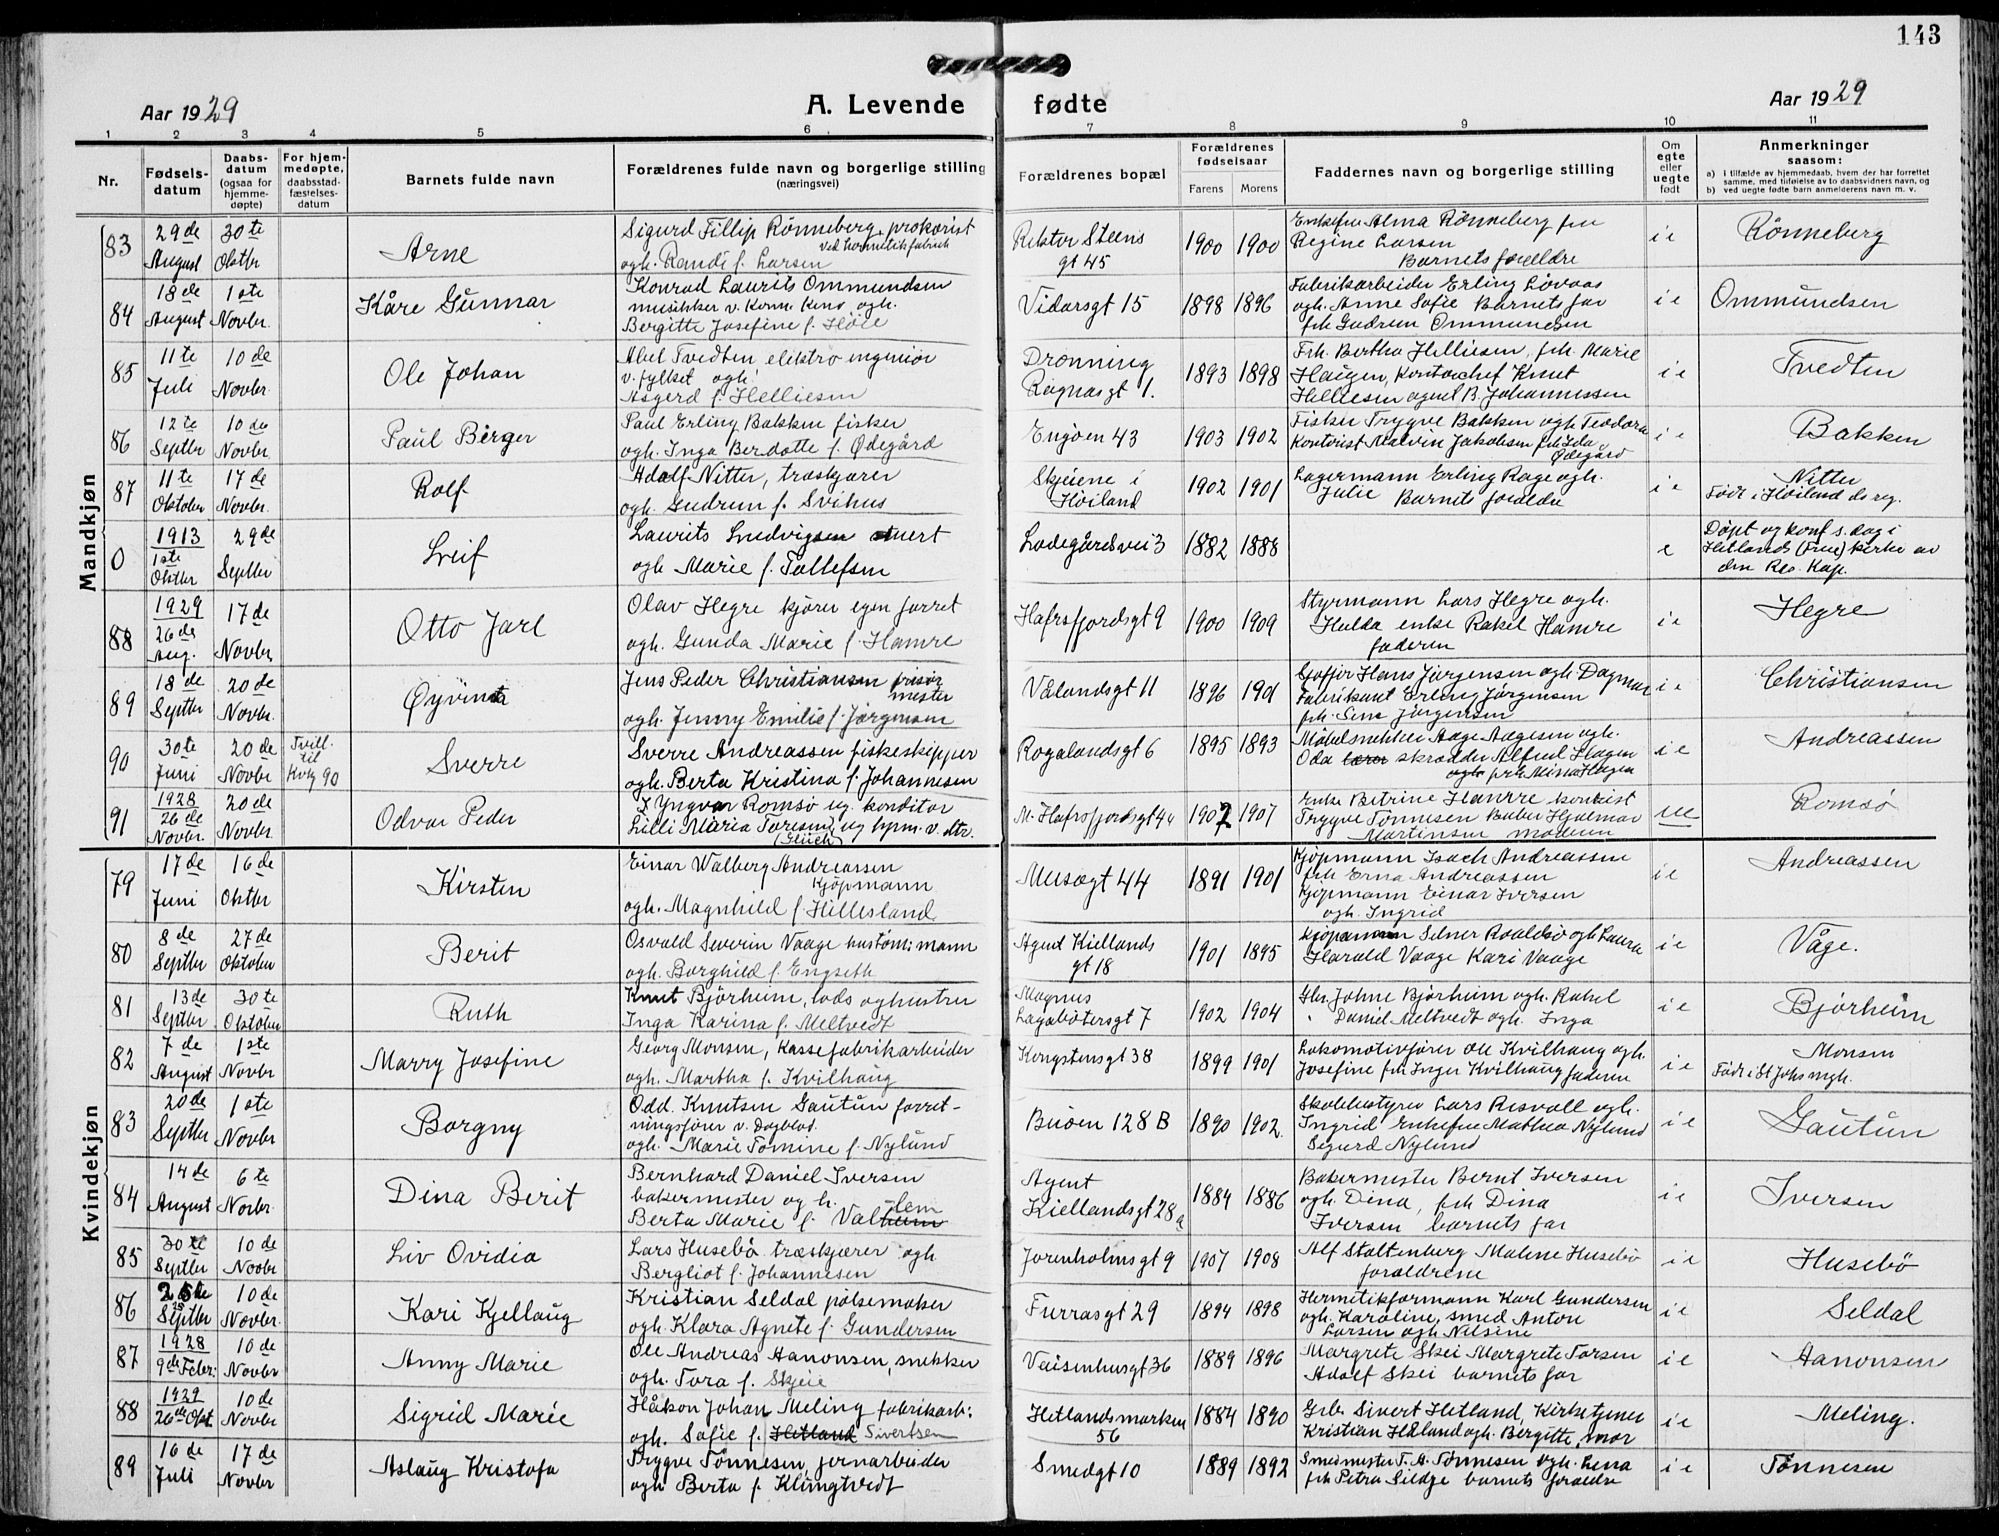 143
Aar 1929
A. Levende fødte
Aar 1929
1 2 3 4 5 6 7 8 9 10 11
Nr.
Fødsels-
datum
Daabs-
datum
(ogsaa for
hjemme-
døpte)
For hjem-
medøpte,
daabsstad-
fæstelses-
datum
Barnets fulde navn
Forældrenes fulde navn og borgerlige stilling
(næringsvei)
Forældrenes bopæl
Forældrenes
fødselsaar
Farens Morens
Faddernes navn og borgerlige stilling
Om
egte
eller
uegte
født
Anmerkninger
saasom:
a) i tilfælde av hjemmedaab, hvem der har forrettet
samme, med tilføielse av to daabsvidners navn, og
b) ved uegte fødte barn anmelderens navn m. v.
Mandkjøn
83 29de August 30te Oktbr Arne
Sigurd Fillip Rønneberg, prokorist
ved hermetikfabrick
ogh. Randi f. Larsen
Rektor Steens
gt 45
1900 1900
Enkefru Alma Rønneberg fru
Regine Larsen
Barnets forældre
i e
Rønneberg
84 18de August 1ste Novbr. Kåre Gunnar
Konrad Laurits Ommundsen
musikker v. Kom. Kino ogh.
Bergitte Josefine f. Høie
Vidarsgt 15
1898 1896
Fabrikarbeider Erling Løvaas
ogh. Anne Sofie Barnets far
frk Gudrun Ommundsen
i e
Ommundsen
85 11te Juli 10de Novbr. Ole Johan
Abel Tvedten elektro ingeniør
v. fylket ogh.
Asgerd f. Helliesen
Dronning
Ragnasgt 1.
1893 1898
Frk. Bertha Helliesen, frk. Marie
Haugen, Kontorchef Knut
Helliesen agent B. Johannessen
i e
Tvedten
86 12te Septbr 10de Novbr. Paul Birger
Paul Erling Bakken fisker
ogh. Inga Berdotte f. Ødegård
Engøen 43
1903 1902
Fisker Trygve Bakken ogh Teodora
Kontorist Malvin Jakobsen frk Ida
Ødegård
i e
Bakken
87 11te Oktober 17de Novbr. Rolf
Adolf Nitter, træskjærer
ogh. Gudrun f. Svihus
Skjeiene i
Høiland
1902 1901
Lagermann Erling Rage ogh.
Julie Barnets foraldre
i e
Nitter
Født i Høiland ds reg.
0 1913 1ste Oktbr 29de Septbr Leif
Laurits Ludvigsen murer
ogh Marie f. Tollefsen
Ladegårdsvei 3
1882 1888
e
Døpt og konf s. dag i
Hetlands (Frue) kirke av
den Res. Kap.
88 1929 26de Aug. 17de Novbr. Otto Jarl
Olav Hegre kjører egen forret
ogh. Gunda Marie f. Hamre
Hafrsfjordsgt 9
1900 1909
Styrmann Lars Hegre ogh.
Hulda enke Rakel Hamre
faderen
i e
Hegre
89 18de Septbr 20de Novbr. Øyvind
Jens Peder Christiansen frisør
mester
ogh. Jenny Emilie f. Jørgensen
Vålandsgt 11
1896 1901
Gafjør Hans Jørgensen ogh Dagmar
Fabrikant Erling Jørgensen
frk. Sene Jørgensen
i e
Christiansen
90 30te Juni 20de Novbr Tvill. til Kvk 90 Sverre
Sverre Andreassen fiskeskipper
ogh. Berta Kristina f. Johannesen
Rogalandsgt 6
1895 1893
Møbelsnekker Aage Aagesen ogh.
Oda skrædder Alfred Hagen
ogh frk Mina Hagen
i e
Andreassen
91 1928 26de Novbr. 20de Novbr. Odvar Peder
Yngvar Romsø ug. konditor
Lilli Maria Toresen, ug hjm. v. str.
M. Hafrsfjordsgt 44
1907 1907
Enke Betrine Hamre kontorist
Trygve Tønnesen Baker Hjalmar
Martinsen moderen
ue
Romsø
Kvindekjøn
79 17de Juni 16de Oktbr Kirsten
Einar Walberg Andreassen
kjøpmann
ogh. Magnhild f Hillesland
Musægt 44
1891 1901
Kjøpmann Isach Andreassen
frk Erna Andreassen
Kjøpmann Einar Iversen
ogh. Ingrid
i e
Andreassen
80 8de Septbr 27de Oktober Berit
Osvald Severin Vaage kustom: mann
ogh. Borghild f. Engseth
Agent Kiellands
gt 18
1901 1895
Kjøpmann Selner Roaldsø ogh Laura
Harald Vaage Kari Vaage
i e
Våge.
81 13de Septbr. 30te Oktober Ruth
Knut Bjørheim, lods oghustru
Inga Karina f. Meltvedt
Magnus
Lagabøtersgt 7
1902 1904
Gbr. Johne Bjørheim ogh. Rakel
" Daniel Meltvedt ogh. Inga
i e
Bjørheim
82 7de August 1ste Novbr. Marry Josefine
Georg Monsen, kassefabrikarbeider
ogh. Martha f. Kvilhaug
Kongstensgt 38
1899 1901
Lokomotivfører Ole Kvilhaug ogh.
Josefine frk Inger Kvilhaug faderen
i e
Monsen
Født i St Johs mgh.
83 20de Septbr 1ste Novbr. Borgny
Odd Knutsen Gautun forret-
ningsfører v. Dagblad.
ogh. Marie Tomine f. Nylund
Buøen 128 B
1890 1902.
Skolebestyrer Lars Risvoll ogh.
Ingrid Enkefru Mathea Nylund
Sigurd Nylund
i e
Gautun
84 14de August 6te Novbr. Dina Berit
Bernhard Daniel Iversen
bakermester og h.
Berta Marie f. Valheim lem
Agent
Kiellandsgt 28a
1884 1886
Bakermester Bernt Iversen
ogh. Dina, frk Dina
Iversen barnets far
i e
Iversen
85 30te Septbr 10de Novbr Liv Ovidia
Lars Husebø træskjærer ogh
Bergliot f. Johannesen
Jorenholmsgt 9
1907 1908
Alf Stoltenberg Malene Husebø
foraldrene
i e
Husebø
86 25de Septbr 10de Novbr. Kari Kjellaug
Kristian Seldal pølsemaker
ogh. Klara Agnete f. Gundersen
Furrasgt 29
1894 1898
Hermetikformann Karl Gundersen
ogh. Karoline, smed Anton
Larsen ogh Nilsine
i e
Seldal
87 1928 9de Febr: 10de Novbr Anny Marie
Ole Andreas Aanonsen, snekker
ogh. Tora f. Skjeie
Vaisenhusgt 36
1889 1896
Margrete Skei Margrete Torsen
Adolf Skei barnets far
i e
Aanonsen
88 1929 26de Okt. 10de Novbr Sigrid Marie
Håkon Johan Meling fabrikarb:
ogh. Sofie f. Hetland Sivertsen
Hetlandsmarken
56
1884 1890
Grb. Sivert Hetland, Kirketjener
Kristian Håland ogh. Bergitte, mor
i e
Meling.
89 16de Juli 17de Novbr. Aslaug Kristofa
Trygve Tønnesen, jernarbeider
ogh Berta f. Klingtvedt
Smedgt 10
1889 1892
Smedmester T. A. Tønnesen ogh. Lena
frk Petra Seldge barnets foraldre
i e
Tønnesen